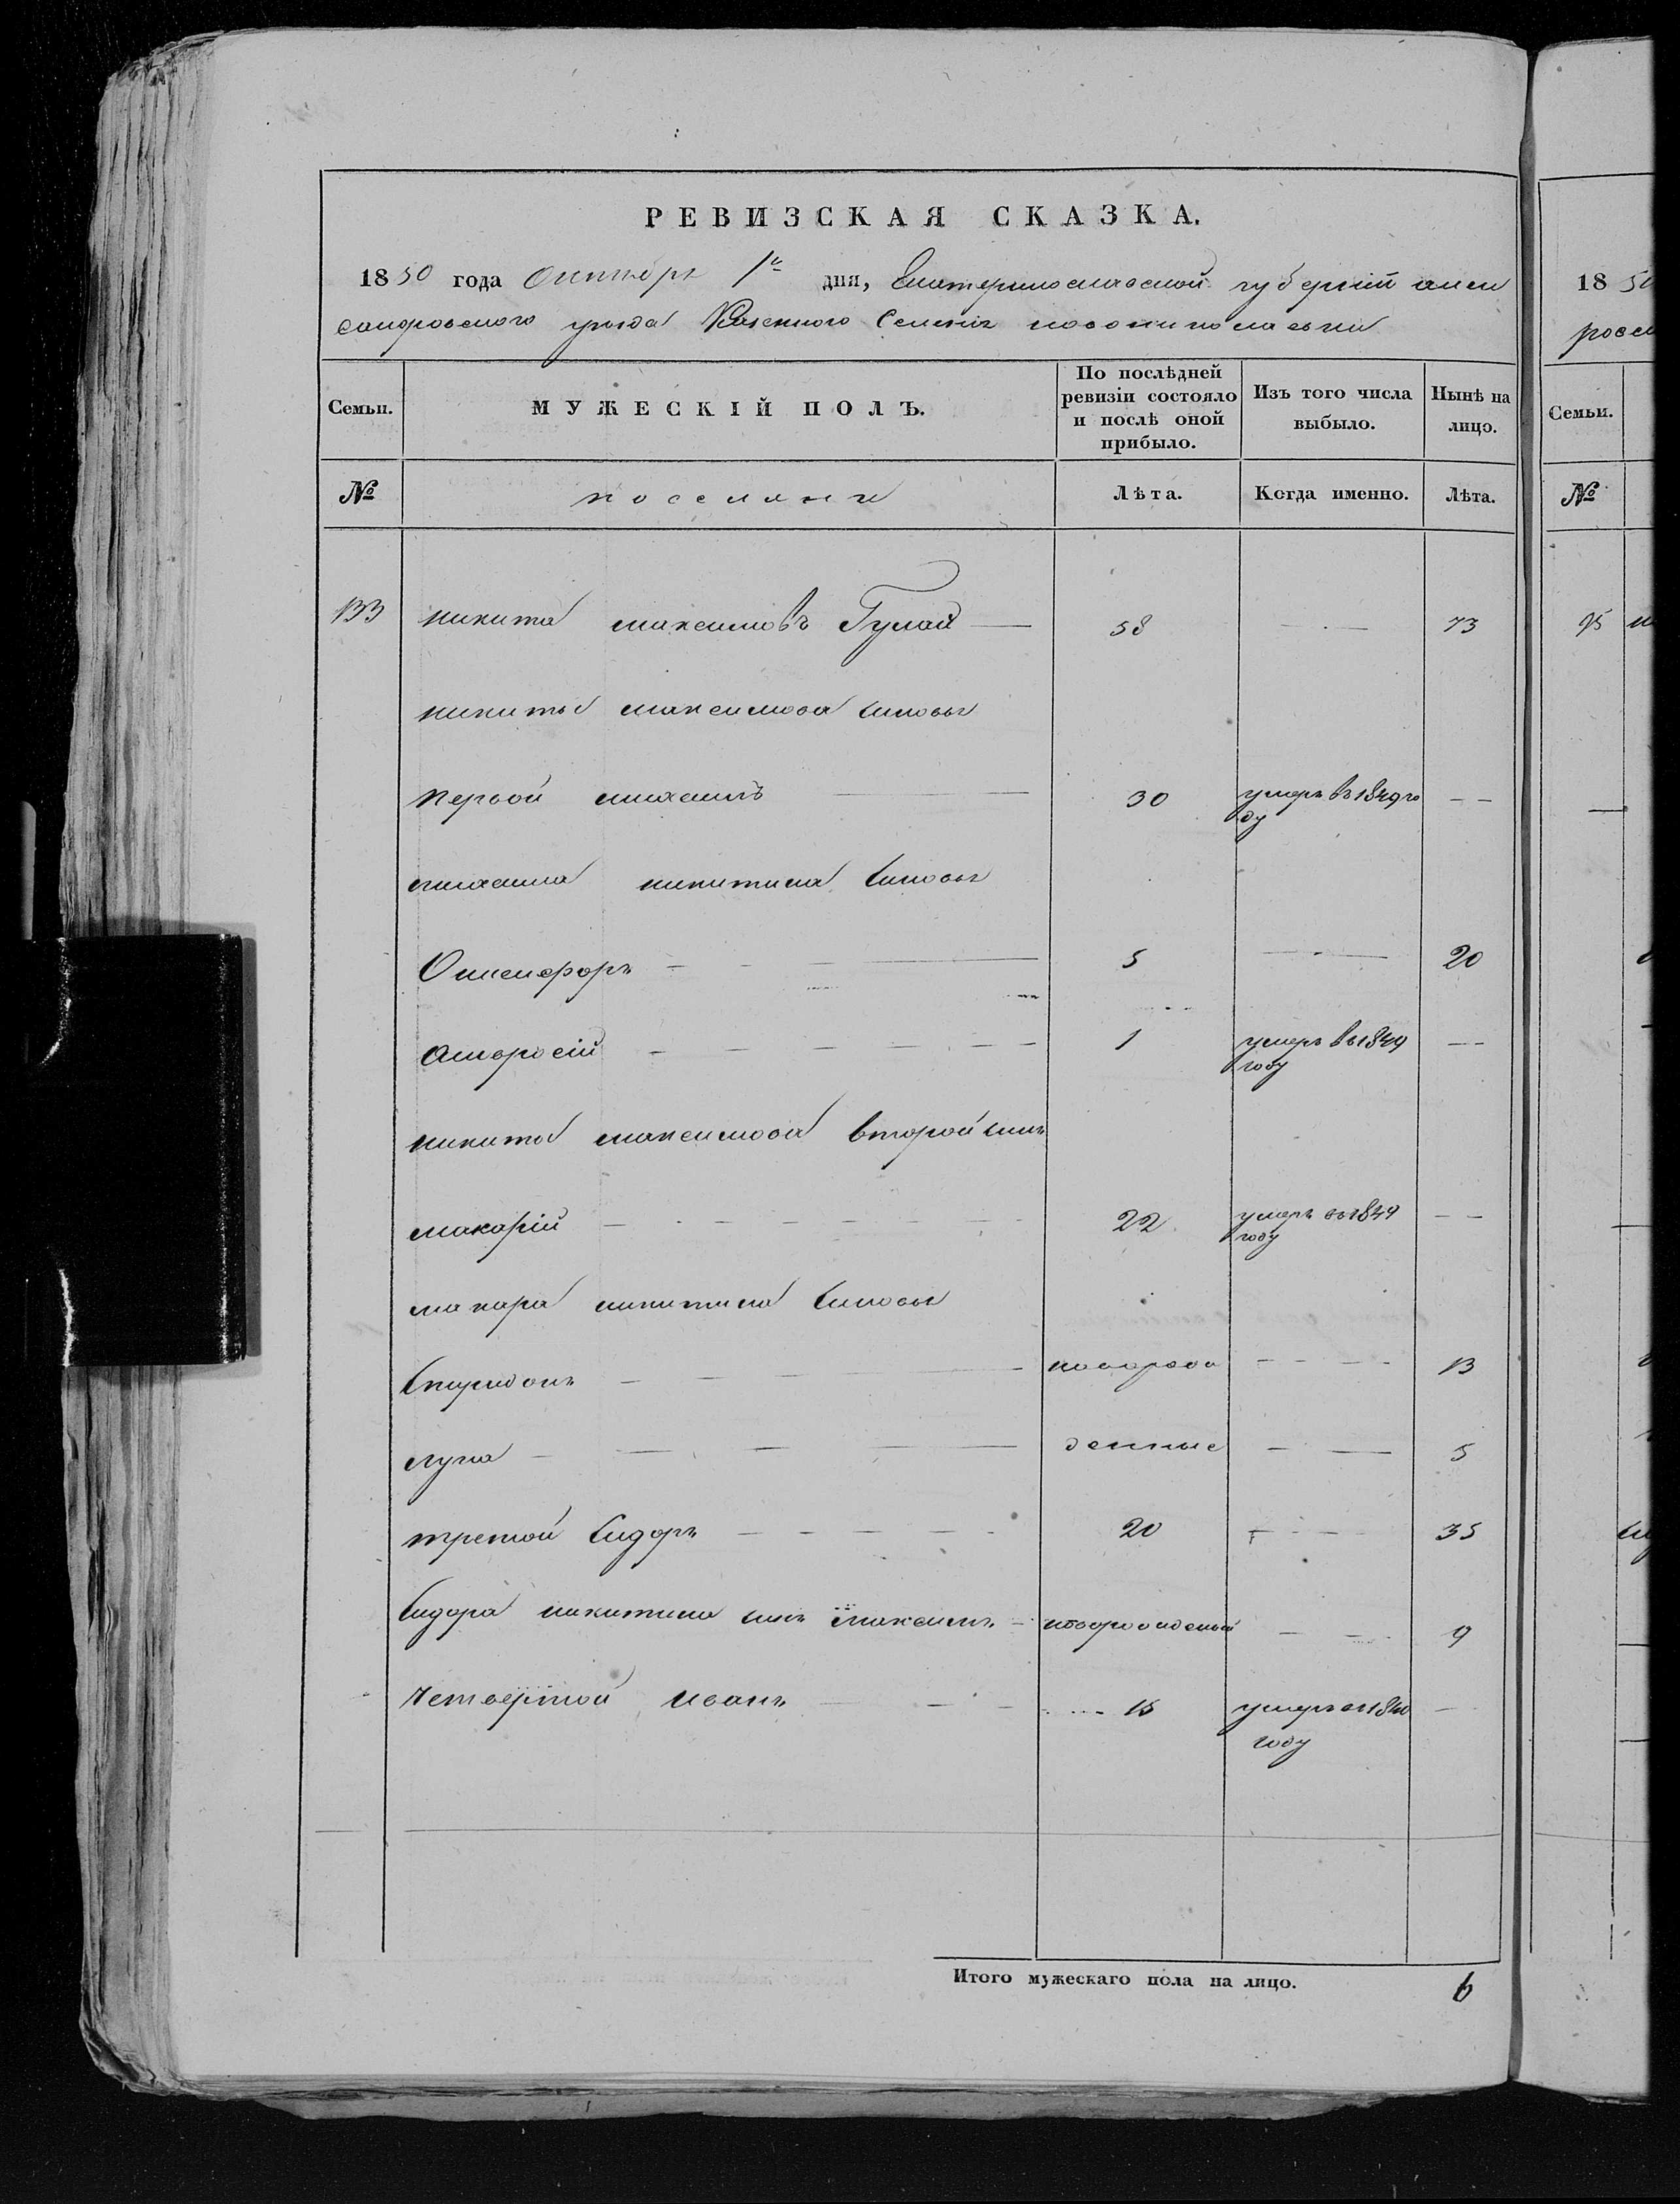 РЕВИЗСКАЯ СКАЗКА.
1850 года Октября 1го дня, Екатеринославской губерній алек
сандровского уезда Казенного Селенія новониколаевки
Семьи.
МУЖЕСКІЙ ПОЛЪ.
По послѣдней
ревизіи состояло
и послѣ оной
прибыло.
Изъ того числа
выбыло.
Нынѣ на
лицо.
№
поселяне
Лѣта.
Когда именно.
Лѣта.
133 никита максимовъ Гулай 58 73
никиты максимова сыновья
первой 30 умеръ въ 1849 го
ду
никитина сыновья
Онисифоръ 5 20
Амвросій 1 умеръ въ 1849
году
никиты максимова второй сынъ
макарій 22 умеръ въ 1849
году
макара никитина сыновья
Спиридонъ новорож 13
лука денные 5
третой Сидоръ 20 35
Сидора никитина сынъ максимъ новорожденый 9
четвертой иванъ 15 умеръ въ 1840
году
Итого мужескаго пола на лицо. 6
18 50
Семьи.
№